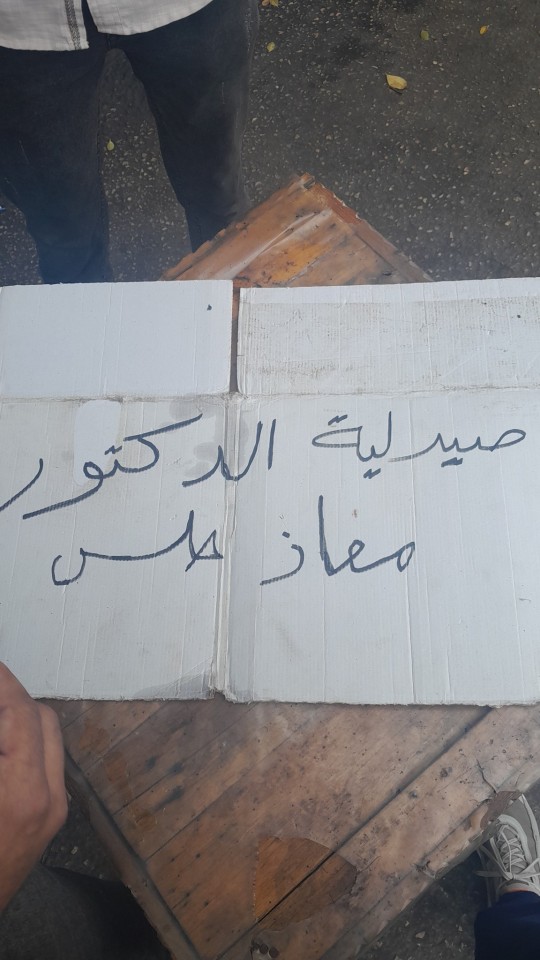 صيدلية الدكتور
معاذ حلس